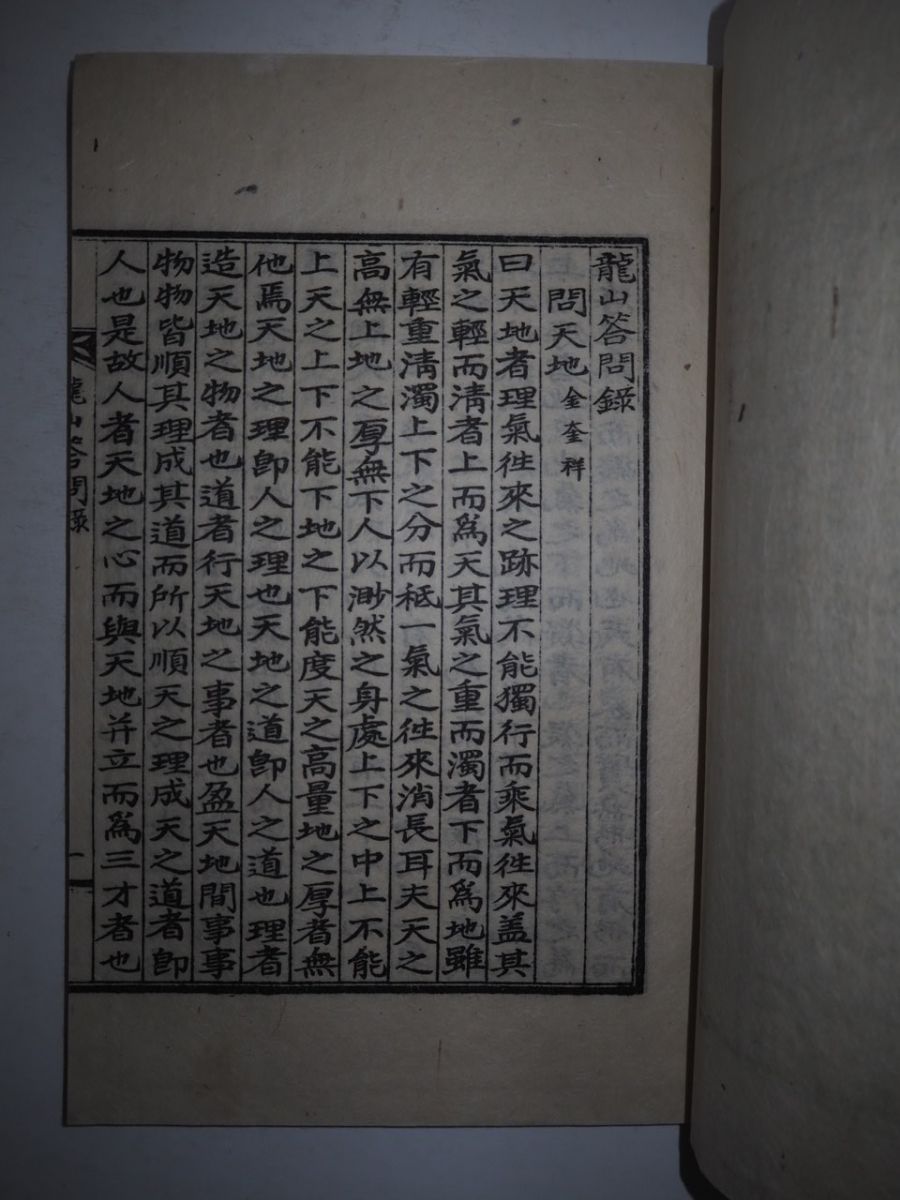 龍山答問錄
問天地 金奎祥
曰天地者理氣徃來之跡理不能獨行而乘氣徃來盖其
氣之輕而淸者上而爲天其氣之重而濁者下而爲地雖
有輕重淸濁上下之分而秪一氣之徃來消長耳夫天之
高無上地之厚無下人以渺然之身處上下之中上不能
上天之上下不能下地之下能度天之高量地之厚者無
他焉天地之理卽人之理也天地之道卽人之道也理者
造天地之物者也道者行天地之事者也盈天地間事事
物物皆順其理成其道而所以順天之理成天之道者卽
人也是故人者天地之心而與天地并立而爲三才者也
龍山答問錄
一